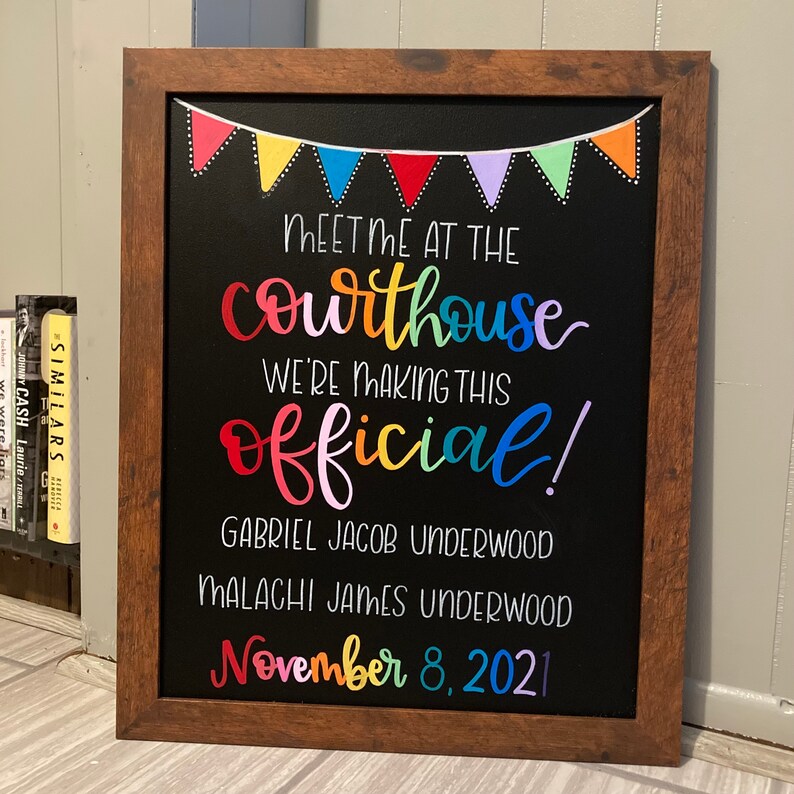 MEET ME AT THE
courthouse
WE'RE MAKING THIS
official!
GABRIEL JACOB UNDERWOOD
MALACHI JAMES UNDERWOOD
November 8, 2021
e. lockhart
we were liars
JOHNNY CASH
Laurie / TERRILL
THE SIMILARS
REBECCA HANOVER